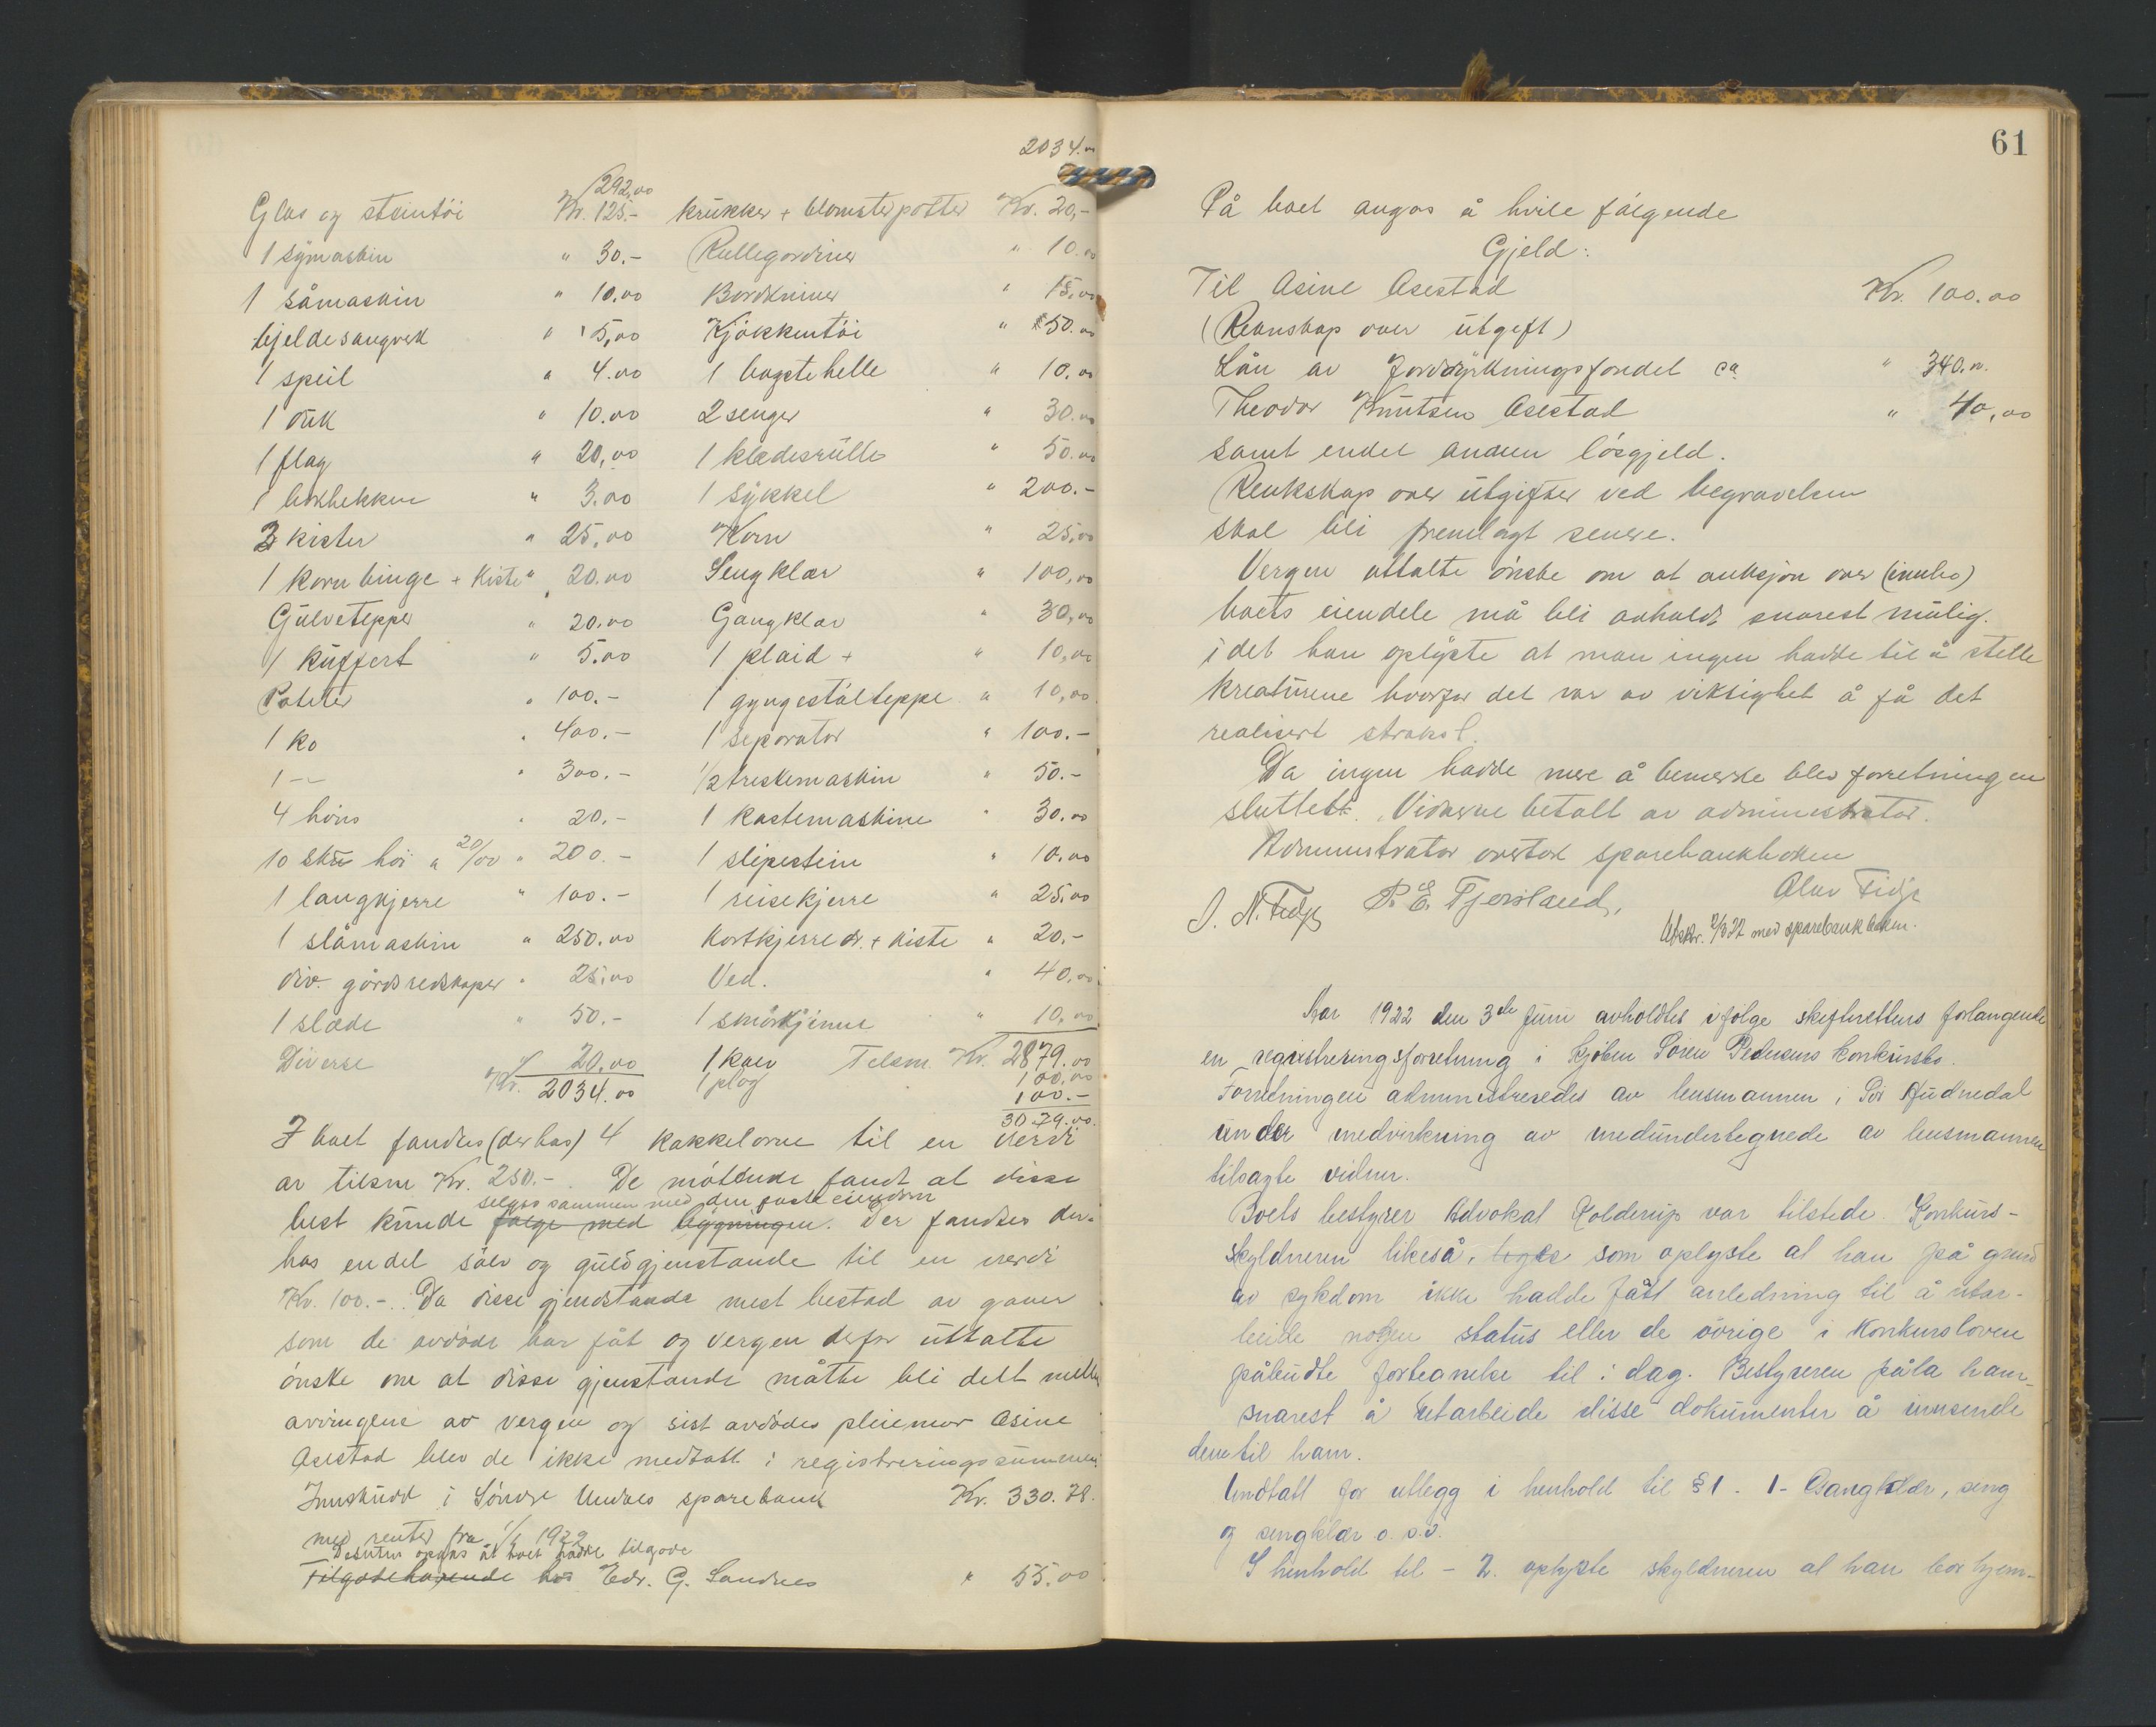 2034.00
292,00
Glas og steintöi Kr. 125.-
1 symaskin " 30.-
1 såmaskin " 10.00
bjeldesaugverk " 5,00
1 speil " 4.00
1 duk " 10.00
1 flag " 20,00
1 " 3.00
3 kister " 25,00
1 kornbinge + kiste " 20.00
Gulvtepper " 20.00
1 kuffert " 5.00
Poteter " 100.-
1 ko " 400.-
1 -"- " 300.-
4 höns " 20.-
10 skü höi a 20/00 " 200.-
1 langkjerre " 100.-
1 slåmaskin " 250.00
div. gårdsredskaper " 25,00
1 slæde " 50.-
Diverse " 20,00
Kr. 2034.00
Krukker + blomsterpotter Kr. 20,-
Rullegardiner " 10.00
Bordkniver " 15,00
Kjökkentöi " 50.00
1 bagstehelle " 10.00
2 senger " 30.00
1 klædesrulle " 50.00
1 sykkel " 200.-
Korn " 25,00
Sengklær " 100,00
Gangklær " 30,00
1 plaid + " 10,00
1 gyngestolteppe " 10,00
1 separator " 100.-
1/2 treskemaskin " 50.-
1 kastemaskine " 30.00
1 slipestein " 10.00
1 reisekjerre " 25.00
Kortkjerre dr. + kiste " 20.-
Ved. " 40,00
1 smörkjerne " 10,00
1 kalv Tilsm. Kr. 2879.00
100.00
1 plog 100.-
3079.00.
I boet fandtes (derhos) 4 kakkelovne til en verdi
av tilsm Kr. 250.-. De mötende fandt at disse
selges sammen med den faste eiendom
best kunde følge med bygningen. Der fandtes der-
hos endel sölv og guldgjenstande til en verdi
Kr. 100.-. Da disse gjenstande mest bestod av gaver
som de avdöde har fåt og vergen derfor uttalte
önske om at disse gjenstande måtte bli delt mellem
arvingene av vergen og sist avdödes pleiemor Asine
Asestad blev de ikke medtatt i registreringssummen
Innskudd i Söndre Undals sparebank Kr. 330.78.
med renter fra 1/1 1922
Desuten opgas at boet hadde tilgode
Tilgodehavende hos Edv. G. Sandnes " 55.00
61
På boet angas å hvile følgende
Gjeld:
Til Asine Asestad Kr. 100.00
(Renskap over utgift)
Lån av Jorddyrkningsfondet ca " 340.00.
Theodor Knutsen Asestad " 40,00
samt endel annen lösgjeld.
Renkskap over utgifter ved begravelsen
skal bli fremlagt senere.
Vergen uttalte önske om at auksjon over (innbo)
boets eiendele må bli avholdt snarest mulig.
idet han oplyste at man ingen hadde til å stelle
kreaturene hvorfor det var av viktighet å få det
realisert straks.
Da ingen hadde mere å bemerke blev forretningen
sluttet. Vidnerne betalt av administrator.
Administrator overtok sparebankboken
O. N. Fidje P. E. Tjorsland, Olav Fidje
Utskr. 7/3 22 med sparebankboken.
Aar 1922 den 3de Juni avholdtes ifölge skifterettens forlangende
en registreringsforretning i kjöbm Sören Pedersens konkursbo.
Forretningen administreredes av lensmannen i Sör Audnedal
under medvirkning av medundertegnede av lensmannen
tilsagte vidner.
Boets bestyrer Advokat Kolderup var tilstede. Konkurs-
skyldneren likeså, som oplyste at han på grund
av sykdom ikke hadde fått anledning til å utar-
beide nogen status eller de övrige i konkursloven
påbudte fortegnelse til i dag. Bestyreren påla ham
snarest å utarbeide disse dokumenter å innsende
dem til ham.
Undtatt for utlegg i henhold til § 1. 1 - Gangklær, seng
og sengklær o.s.v.
I henhold til - 2. oplyste skyldneren at han bor hjem-